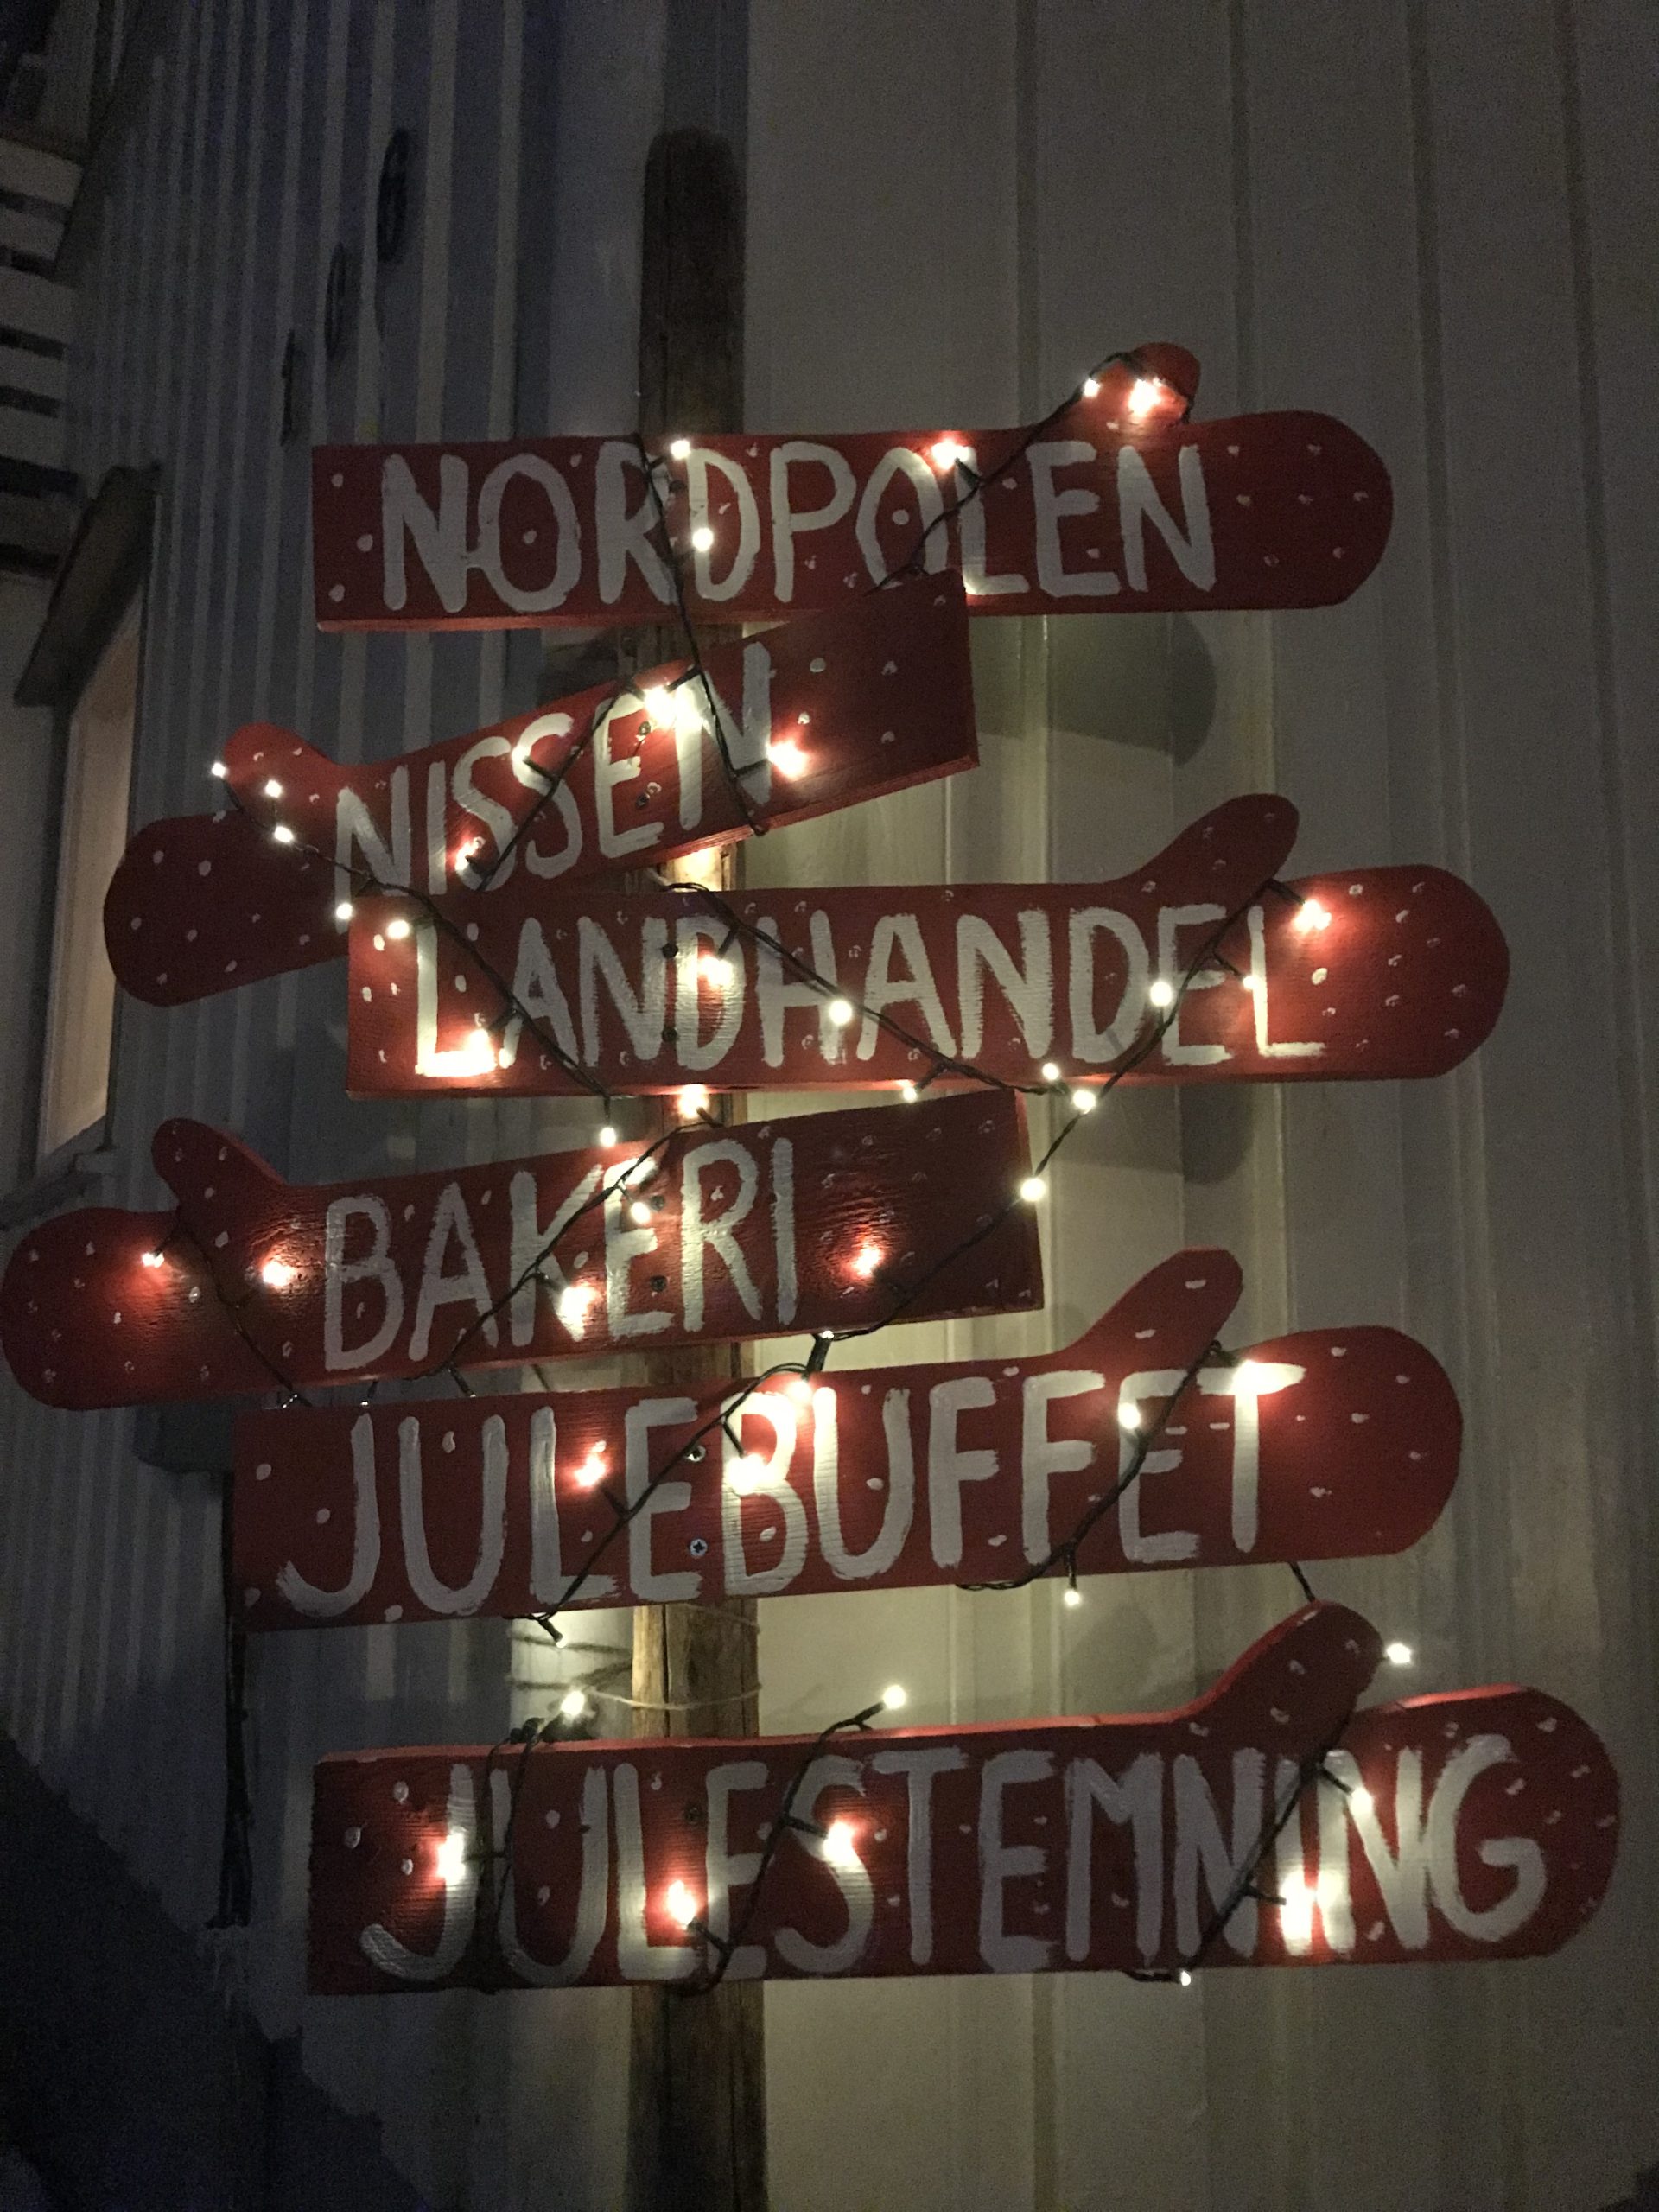 NORDPOLEN
NISSEN
LANDHANDEL
BAKERI
JULEBUFFET
JULESTEMNING